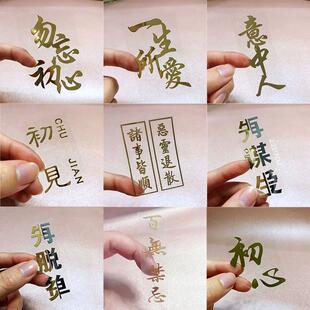 勿忘
初心
一生
所愛
意中人
初見
CHU
JIAN
惡靈退散
諸事皆順
謀
脱
百無禁忌
初心